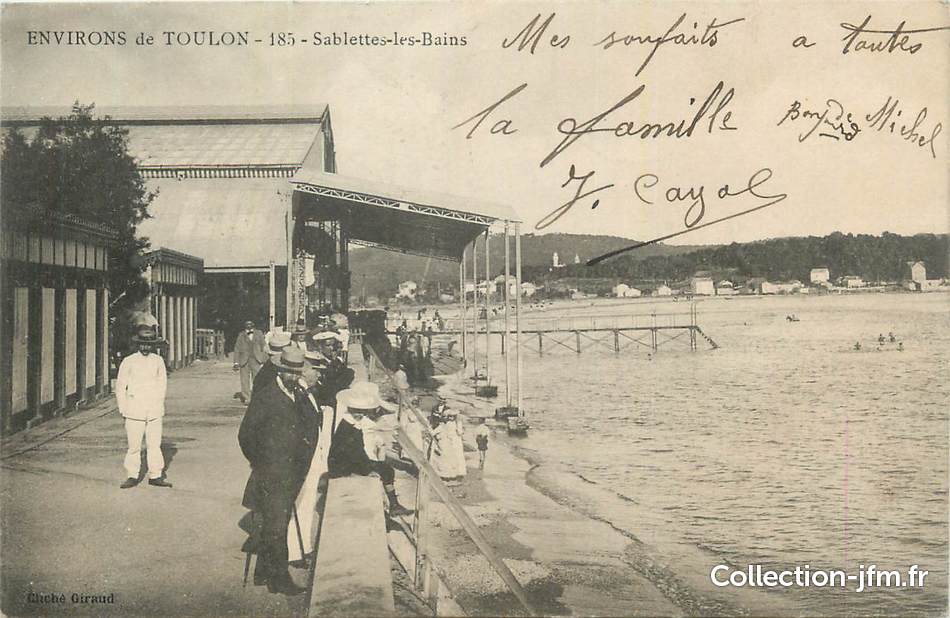 ENVIRONS de TOULON - 185 - Sablettes-les-Bains
Mes souhaits a toutes
la famille
Bonjour de Michel
J. Cayol
Collection-jfm.fr
Cliché Giraud